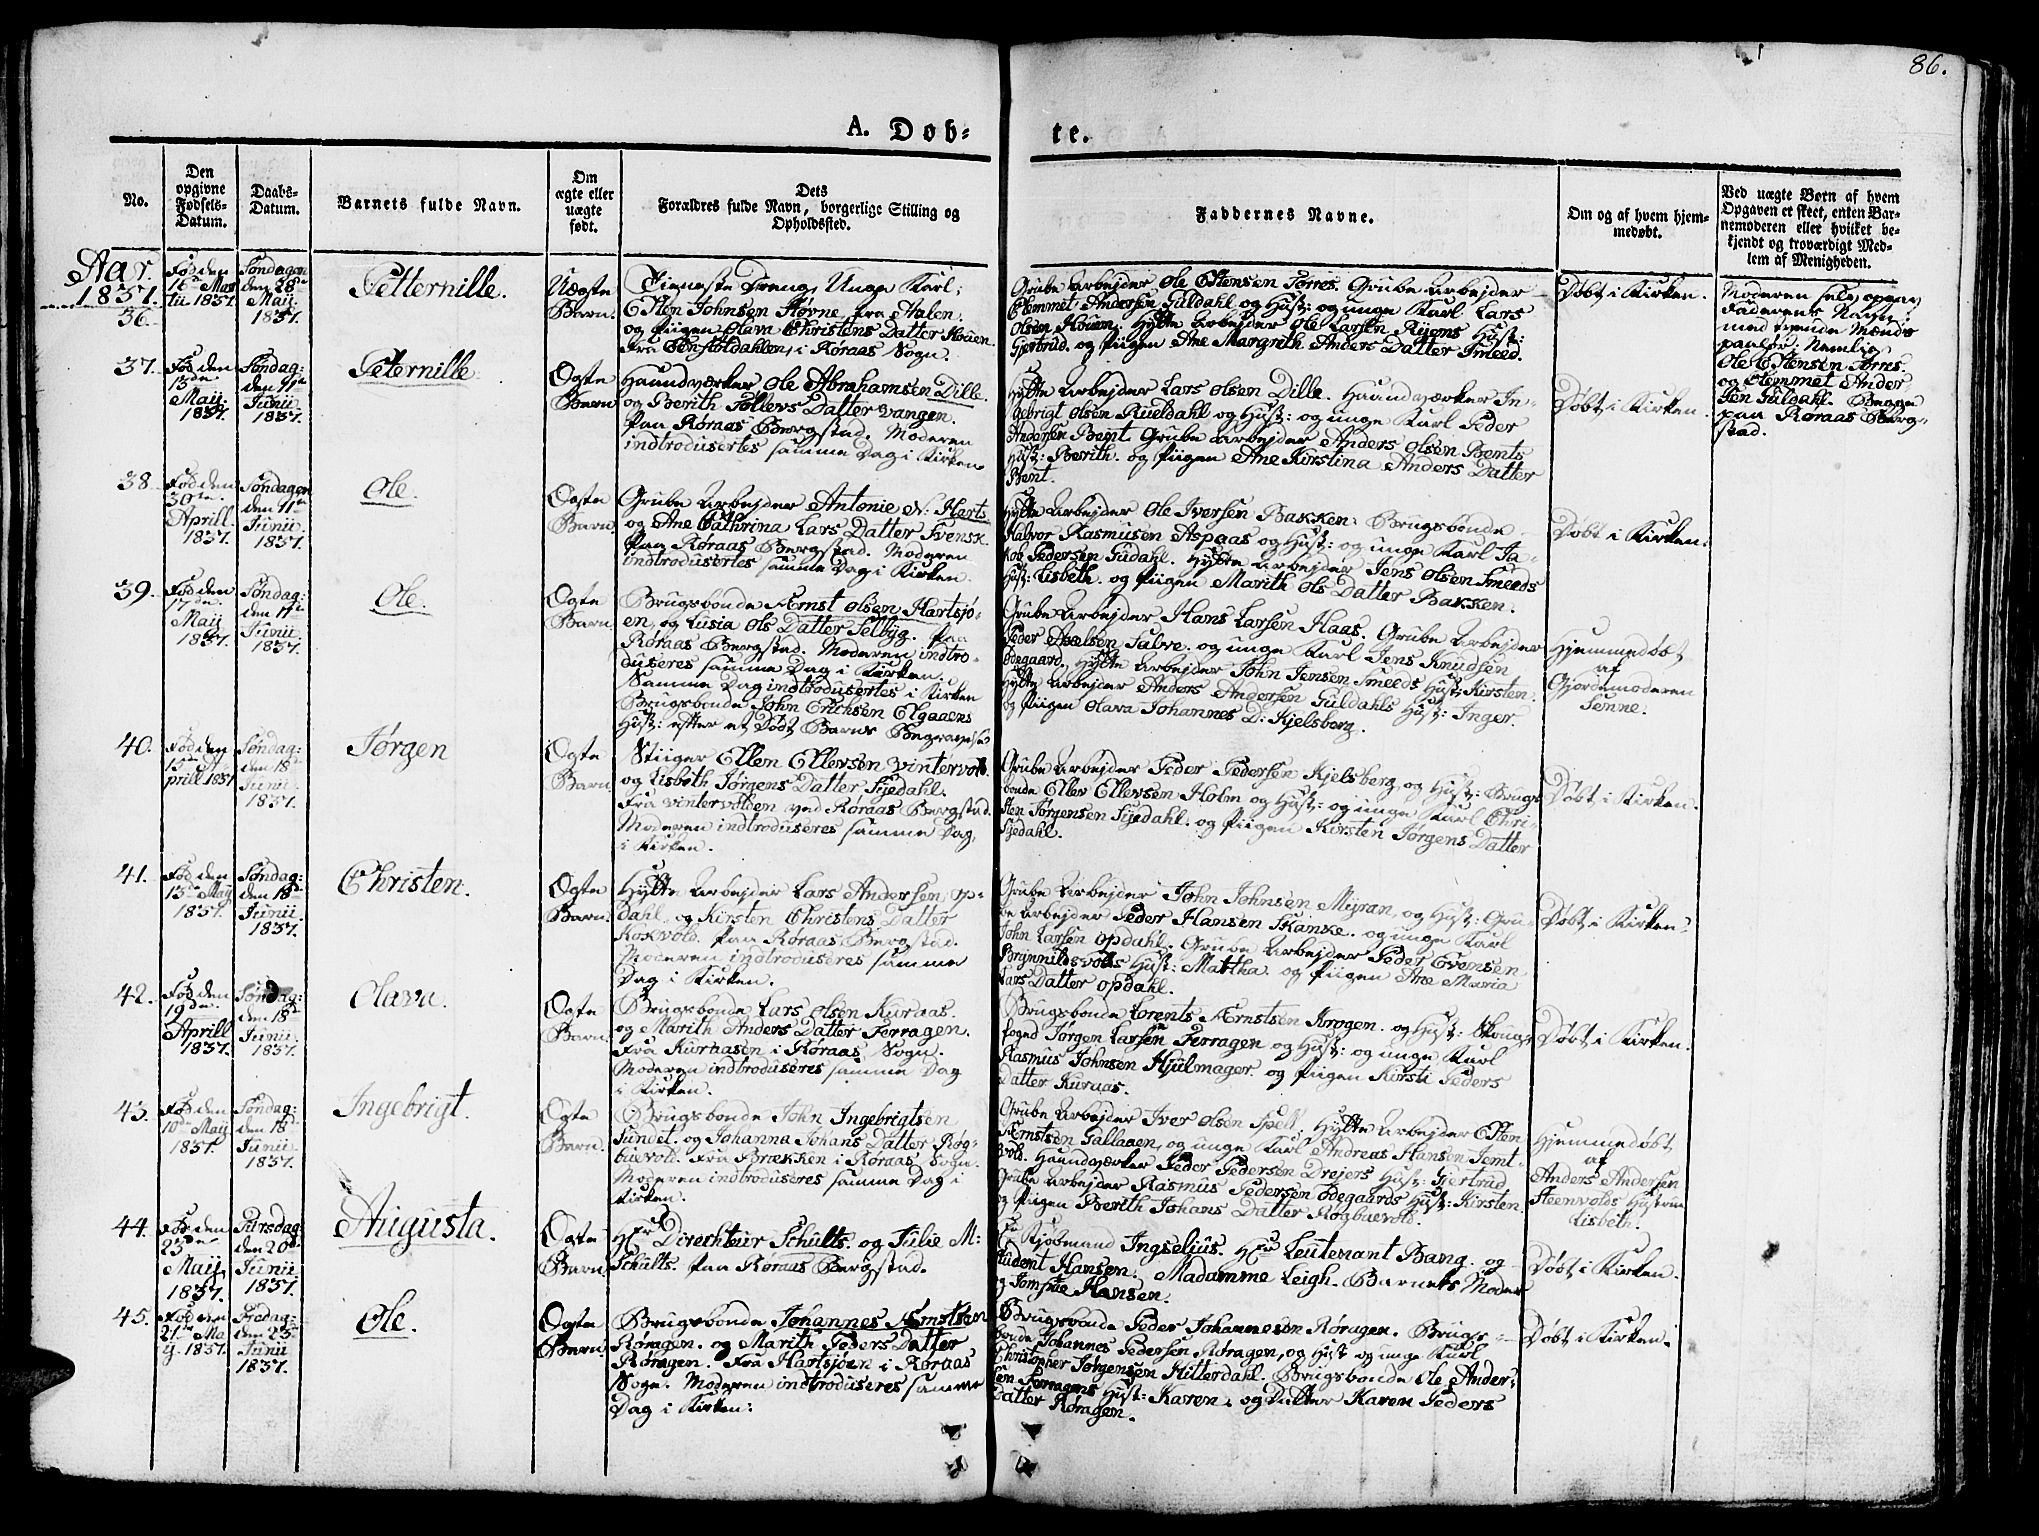 86.
A. Døb-
te.
No.
Den
opgivne
Fødsels-
Datum.
Daabs-
Datum.
Barnets fulde Navn.
Om
ægte eller
uægte
født.
Dets
Forældres fulde Navn, borgerlige Stilling og
Opholdssted.
Faddernes Navne.
Om og af hvem hjem-
medøbt.
Ved uægte Børn af hvem
Opgaven er skeet, enten Bar-
nemoderen eller hvilket be-
kjendt og troværdigt Med-
lem af Menigheden.
Aar
1837.
36.
Fød den
16de Mar
tii 1837.
Søndagen
den 28de
Maij
1837.
Petternille.
Uægte
Barn.
Tieneste Dreng, Unge Karl,
Esten Johnsen Hovne, fra Aalen.
og Piigen Olava Christens Datter Houen.
fra Femstoldahlen, i Røraas Sogn.
Grube Arbejder Ole Estensen Torres. Grube Arbejder
Clemmet Andersen Guldahl og Hust: og unge Karl Lars
Olsen Houen. Hytte Arbejder Ole Larsen Ryens Hust:
Gjertrud. og Piigen Ane Margrith Anders Datter Smeed.
Døbt i Kirken.
Moderen selv opgav
Faderens Navn,
med tvende Mænds
paahør. Nemlig
Ole Estensen Torres.
og Clemmet Ander
sen Guldahl. Begge
paa Røraas Berg-
stad.
37.
Fød den
13de
Maij
1837.
Søndag:
den 11te
Junii
1837.
Peternille
Ægte
Barn
Haandværker Ole Abrahamsen Dille.
og Berith Tollevs Datter Vangen.
paa Røraas Bergstad. Moderen
indtrodusertes samme Dag i Kirken
Hytte Arbejder Lars Olsen Dille. Haandværker In-
gebrigt Olsen Rueldahl og Hust: og unge Karl Peder
Andersen Bent. Grube Arbejder Anders Olsen Bents
Hust: Berith. og Piigen Ane Kirstina Anders Datter
Bent.
Døbt i Kirken.
38.
Fød den
30te
Aprill
1837.
Søndagen
den 11te
Junii
1837.
Ole.
Ægte
Barn.
Grube Arbejder Antonie N: Herts
og Ane Cathrina Lars Datter Svensk.
paa Røraas Bergstad. Moderen
indtrodusertes samme Dag i Kirken.
Hytte Arbejder Ole Iversen Bakken. Brugsbonde
Halvor Rasmusen Aspaas og Hust: og unge Karl Ja-
kob Pedersen Gudahl. Hytte Arbejder Jens Olsen Smeeds
Hust: Lisbeth. og Piigen Marith Ols Datter Bakken.
Døbt i Kirken.
39.
Fød den
17de
Maij
1837.
Søndag:
den 11te
Junii
1837.
Ole.
Ægte
Barn.
Brugsbonde Ærnst Olsen Hartsjø-
en, og Lusia Ols Datter Selbyg. paa
Røraas Bergstad. Moderen indtro-
duseres samme Dag i Kirken.
Samme Dag indtrodusertes i Kirken
Brugsbonde John Erichsen Elgaaens
Hust: efter et Dødt Barns Begravelse
Grube Arbejder Hans Larsen Haas. Grube Arbejder
Peder Axelsen Salve. og unge Karl Jens Knudsen
Ødegaard. Hytte Arbejder John Jensen Smeeds Hust: Kirsten.
Hytte Arbejder Anders Andersen Guldahls Hust: Inger.
og Piigen Olava Johannes D: Kjelsberg.
Hjemmedøbt
af
Gjordemoderen
Senne.
40.
Fød den
15de A
prill 1837
Søndag:
den 18de
Junii
1837.
Jørgen
Ægte
Barn.
Stiiger Ellem Ellevsen Vintervold.
og Lisbeth Jørgens Datter Siedahl.
fra Vintervolden ved Røraas Bergstad.
Moderen indtroduseres samme Dag
i Kirken.
Grube Arbejder Peder Pedersen Kjelsberg, og Hust: Brugs
bonde Ellev Ellevsen Holm og Hust: og unge Karl Chri-
sten Jørgensen Siedahl. og Piigen Kirsten Jørgens Datter
Siedahl.
Døbt i Kirken.
41.
Fød den
13de Maij
1837.
Søndag:
den 18de
Junii
1837.
Christen.
Ægte
Barn.
Hytte Arbejder Lars Andersen Op-
dahl. og Kirsten Christens Datter
Kokvold. paa Røraas Bergstad.
Moderen indtroduseres samme
Dag i Kirken.
Grube Arbejder John Johnsen Myran, og Hust: Gru-
be Arbejder Peder Hansen Skanke. og unge Karl
John Larsen Opdahl. Grube Arbejder Peder Evensen
Brynnildsvolds Hust: Mattha. og Piigen Ane Maria
Lars Datter Opdahl.
Døbt i Kirken.
42.
Fød den
19de
Aprill
1837.
Søndag:
den 18de
Junii
1837.
Olava.
Ægte
Barn.
Brugsbonde Lars Olsen Kuraas.
og Marith Anders Datter Ferragen.
fra Kuraasen i Røraas Sogn.
Moderen indtroduseres samme Dag
i Kirken.
Brugsbonde Lorents Ærnstsen Krogen. og Hust: Skoug-
foged Jørgen Larsen Ferragen og Hust: og unge Karl
Rasmus Johnsen Hjulmager. og Piigen Kirsti Peders
Datter Kuraas.
Døbt i Kirken.
43.
Fød den
10de Maij
1837.
Søndag:
den 18de
Junii
1837.
Ingebrigt.
Ægte
Barn.
Brugsbonde John Ingebrigtsen
Sundet. og Johanna Johans Datter Røg-
buevold. fra Brækken i Røraas Sogn.
Moderen indtroduseres samme Dag i
Kirken.
Grube Arbejder Iver Olsen Spell. Hytte Arbejder Esten
Ærnstsen Gallaaen, og unge Karl Andreas Hansen Jemt-
vold. Haandværker Peder Pedersen Drejers Hust: Gjertrud
Grube Arbejder Rasmus Pedersen Ødegaards Hust: Kirsten.
og Piigen Berith Johans Datter Røgbuevold.
Hjemmedøbt
af
Anders Andersen
Steenvolds Hustrue
Lisbeth.
44.
Fød den
23de
Maij
1837.
Tirsdag
den 20de
Junii
1837.
Augusta.
Ægte
Barn.
Hr Direchteur Schults. og Julie M:
Schults. paa Røraas Bergstad.
Hr Kjøbmand Ingselius. Hr Leutenant Bang. og
Student Hansen. Madamme Leigh. Barnets Moder
og Jomfrue Hansen.
Døbt i Kirken.
45.
Fød den
21de Ma
ij. 1837.
Fredag:
den 23de
Junii
1837.
Ole.
Ægte
Barn.
Brugsbonde Johannes Ærnstsen
Røragen. og Marith Peders Datter
Røragen. fra Hartsjøen i Røraas
Sogn. Moderen indtroduseres samme
Dag i Kirken.
Brugsbonde Peder Johannesen Røragen. Brugs-
bonde Johannes Pedersen Røragen, og Hust og unge Karl
Christopher Jørgensen Hitterdahl. Brugsbonde Ole Ander-
sen Ferragens Hust: Karen. og Datter Karen Peders
Datter Røragen.
Døbt i Kirken.